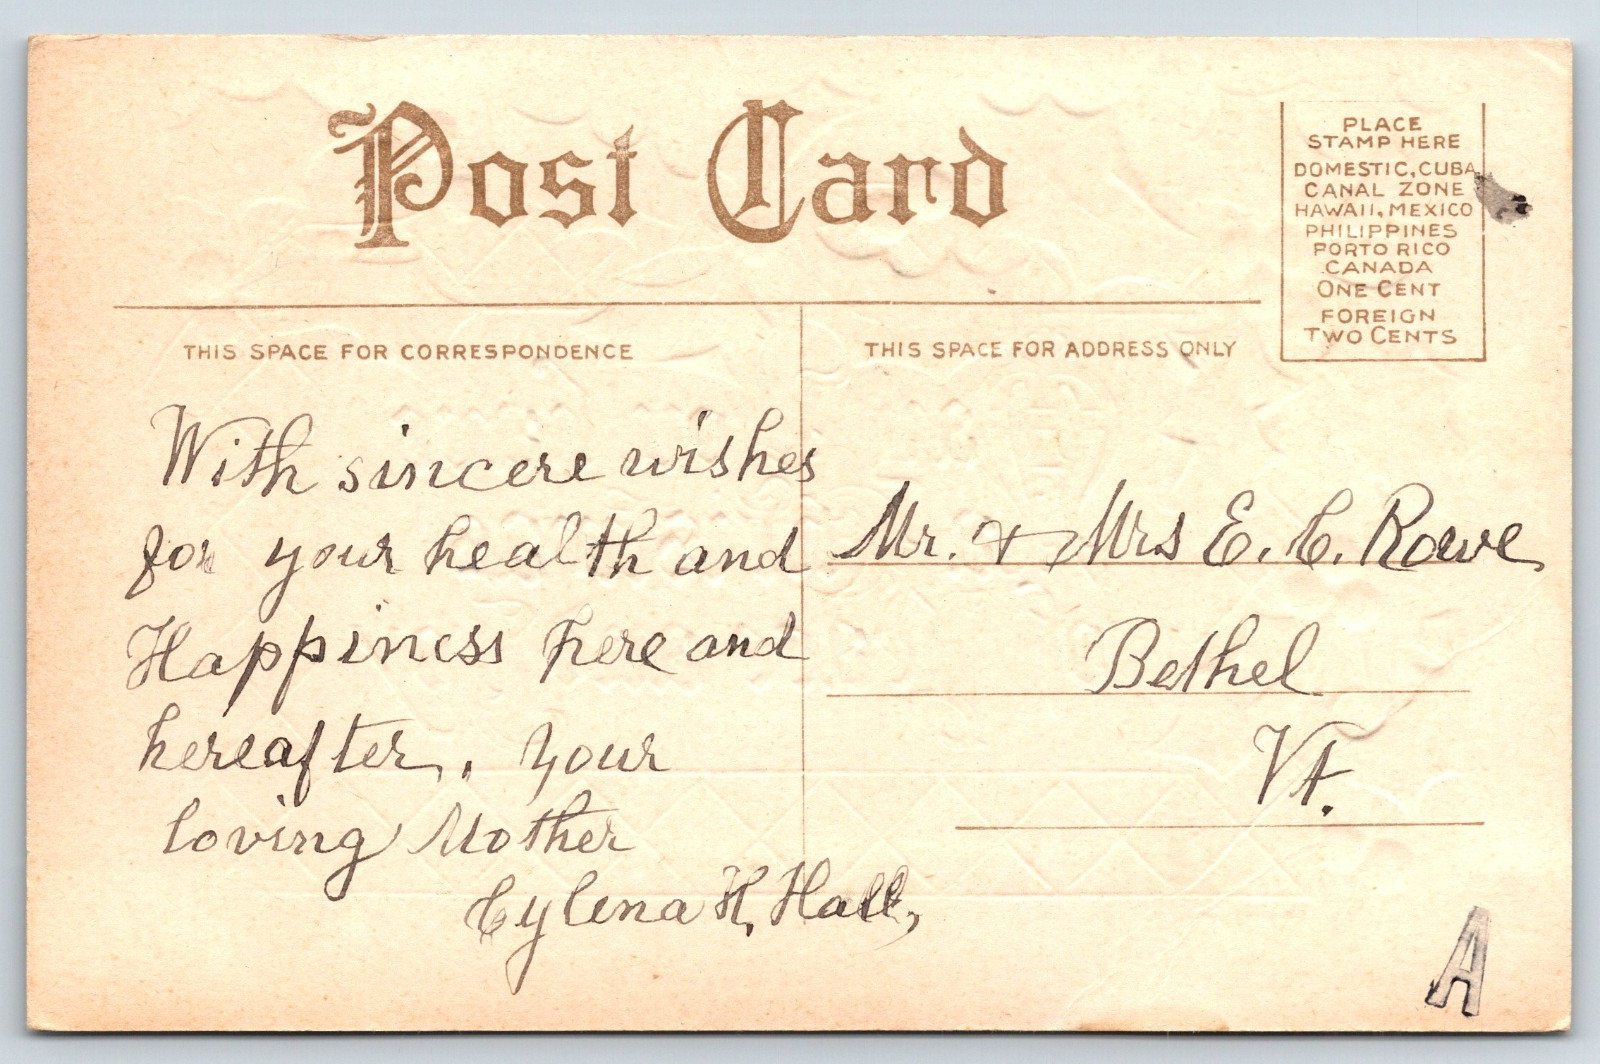 Post Card
PLACE
STAMP HERE
DOMESTIC, CUBA
CANAL ZONE
HAWAII, MEXICO
PHILIPPINES
PORTO RICO
CANADA
ONE CENT
FOREIGN
TWO CENTS
THIS SPACE FOR CORRESPONDENCE
THIS SPACE FOR ADDRESS ONLY
With sincere wishes
for your health and
Happiness here and
hereafter, . Your
loving Mother
Cylena H, Hall,
Mr. & Mrs E. C. Rowe
Bethel
Vt.
A